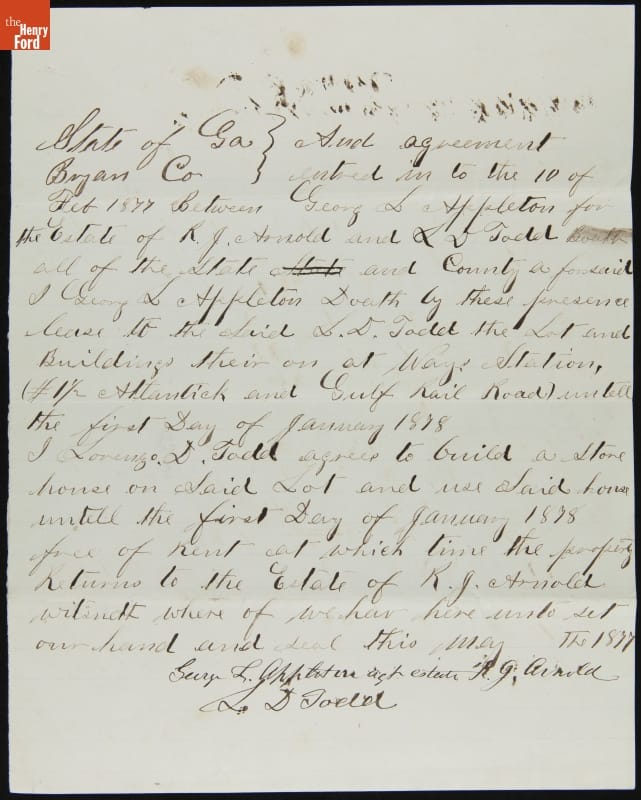 the
Henry
Ford
State of Ga } And agreement
Bryan Co } entred in to the 10 of
Feb 1877 Between Georg L Appleton for
the Estate of R. J. Arnold and L D Todd Boath
all of the State State and County a forsaid
I Georg L Appleton Doath by these presence
lease to the Said L. D. Todd the Lot and
Buildings their on at Ways Station,
(# 1½ Atlantick and Gulf Rail Road) untell
the first Day of January 1878
I Lorenzo. D. Todd agrees to build a Store
house on Said Lot and use Said house
untell the first Day of January 1878
free of Rent at which time the property
Returns to the Estate of R. J. Arnold
witsndth where of we hav here unto set
our hand and seal this May The 1877
George L. Appleton agt estate R. J. Arnold
L D Todd